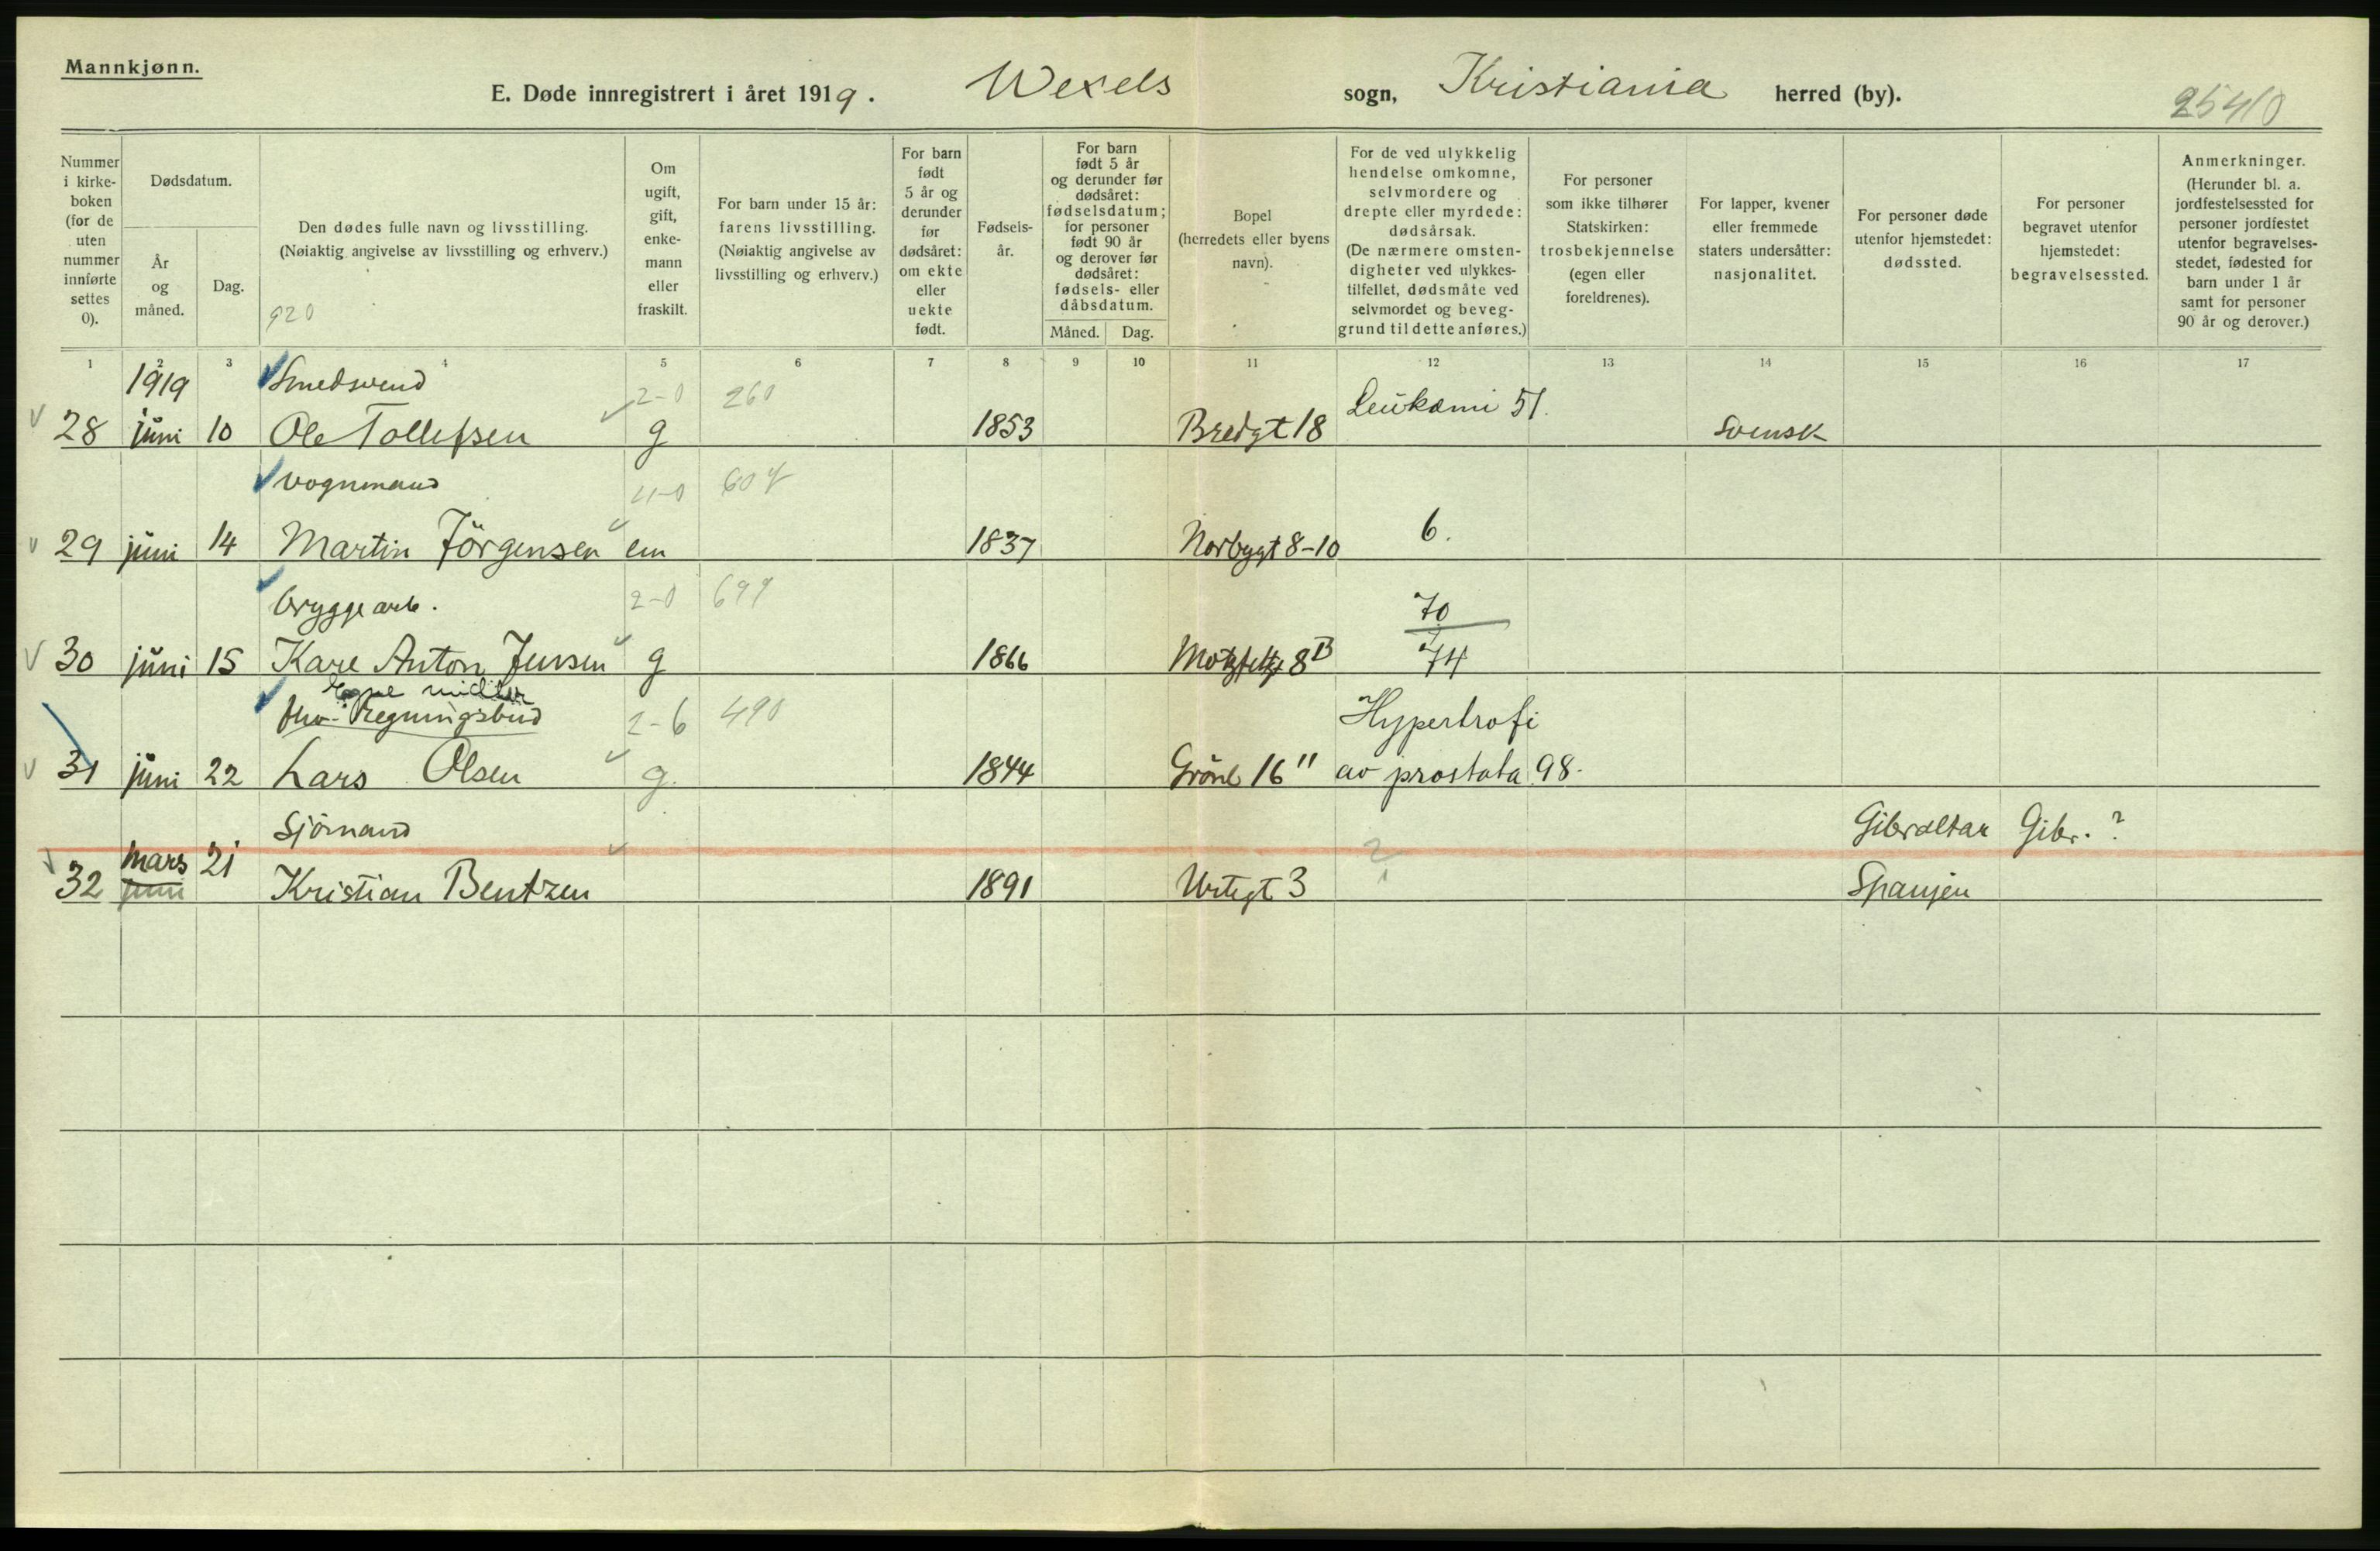 Mannkjønn.
E. Døde innregistrert i året 1919. Wexels sogn, Kristiania herred (by).
25410
Nummer i kirke- boken (for de uten nummer innførte settes 0).
Dødsdatum.
År og måned.
Dag.
Den dødes fulle navn og livsstilling.
(Nøiaktig angivelse av livsstilling og erhverv.)
920
Om ugift, gift, enke- mann eller fraskilt.
For barn under 15 år: farens livsstilling.
(Nøiaktig angivelse av livsstilling og erhverv.)
For barn født 5 år og derunder før dødsåret: om ekte eller uekte født.
Fødsels- år.
For barn født 5 år og derunder før dødsåret: fødselsdatum; for personer født 90 år og derover før dødsåret: fødsels- eller dåbsdatum.
Måned. Dag.
Bopel (herredets eller byens navn).
For de ved ulykkelig hendelse omkomne, selvmordere og drepte eller myrdede: dødsårsak.
(De nærmere omsten- digheter ved ulykkes- tilfellet, dødsmåte ved selvmordet og beveg- grund til dette anføres.)
For personer som ikke tilhører Statskirken: trosbekjennelse (egen eller foreldrenes).
For lapper, kvener eller fremmede staters undersåtter: nasjonalitet.
For personer døde utenfor hjemstedet: dødssted.
For personer begravet utenfor hjemstedet: begravelsessted.
Anmerkninger.
(Herunder bl. a. jordfestelsessted for personer jordfestet utenfor begravelses- stedet, fødested for barn under 1 år samt for personer 90 år og derover.)
1 2 3 4 5 6 7 8 9 10 11 12 13 14 15 16 17
1919 Smedsvend 2-0 260 Leukæmi 51.
28 juni 10 Ole Tollefsen g 1853 Bredgt 18 Svensk
Vognmand 4-0 607
29 juni 14 Martin Jörgensen em 1837 Norbygt 8-10 6.
Bryggearb. 2-0 699 70
30 juni 15 Karl Anton Jensen g 1866 Motzfeltsg 8B 74
Egne midler
fhv. Regningsbud 2-6 490 Hypertrofi
31 juni 22 Lars Olsen g. 1844 Grönl 16" av prostata 98.
Sjömand Gibraltar Gibr. ?
mars 21 ?
32 juni Kristian Bentzen 1891 Urtegt 3 Spanjen